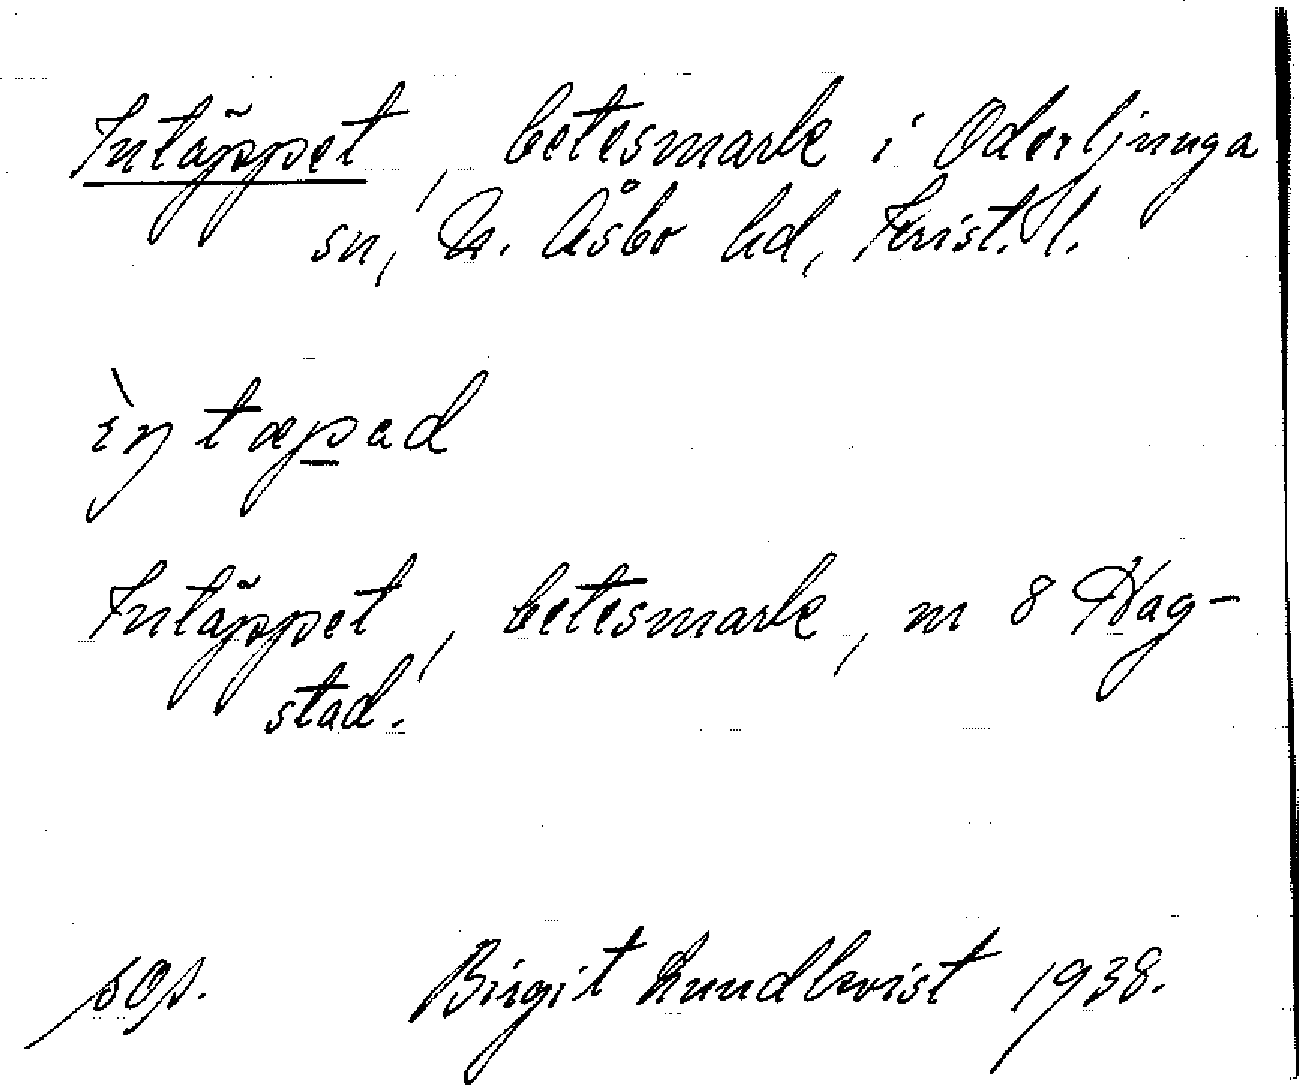 Intäppet, betesmark i Oderljunga
sn, N. Åsbo hd, Krist. l.
ìntæpad
Intäppet, betesmark, m 8 Hag-
stad.
sop. Birgit Lundkvist 1938.